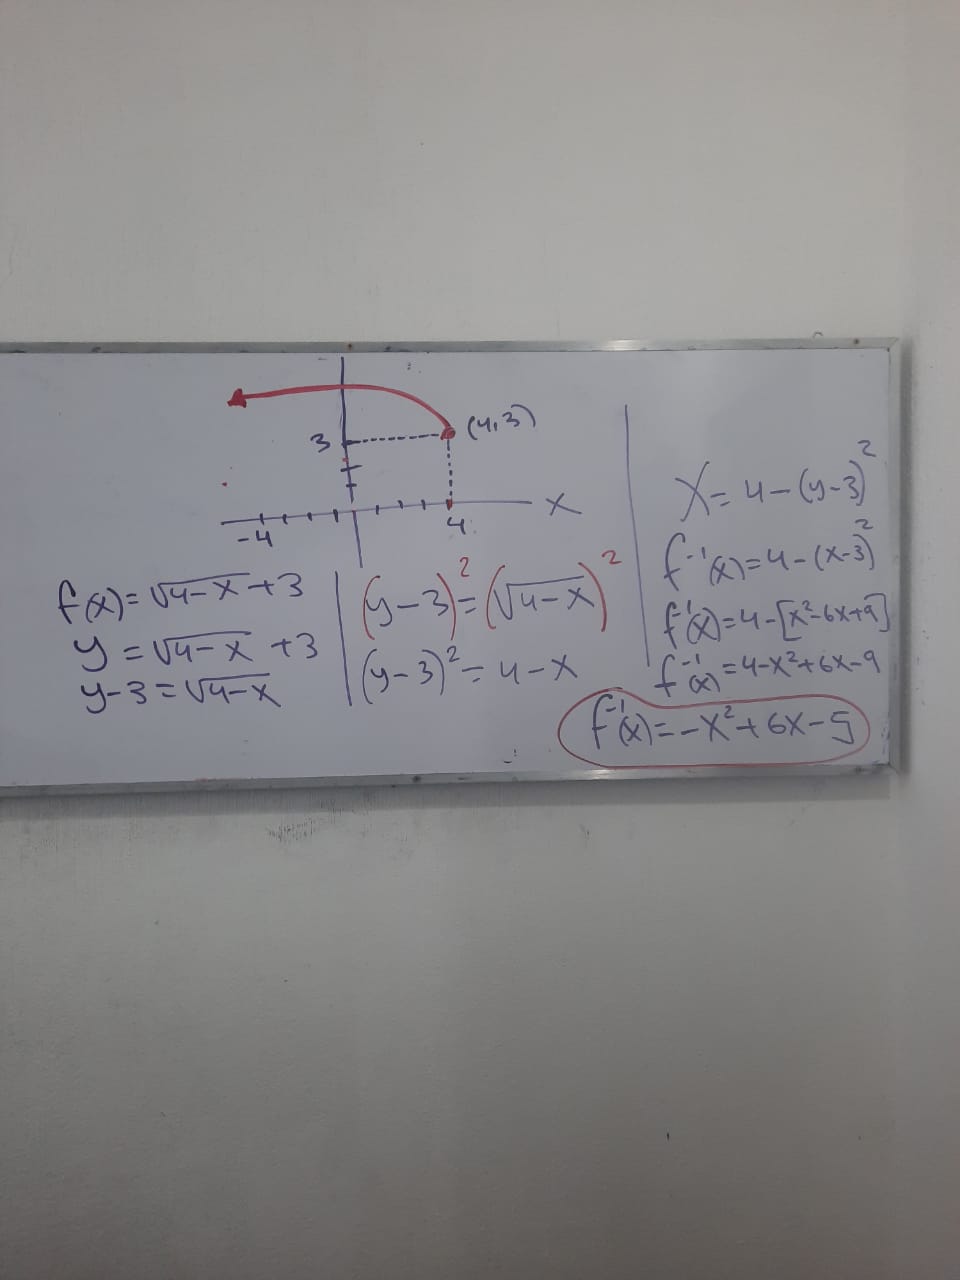 (4,3)
3
x
-4
4
f(x)=√4-x+3
y=√4-x+3
y-3=√4-x
(y-3)²=(√4-x)²
(y-3)²=4-x
x=4-(y-3)²
f⁻¹(x)=4-(x-3)²
f⁻¹(x)=4-[x²-6x+9]
f⁻¹(x)=4-x²+6x-9
f⁻¹(x)=-x²+6x-5